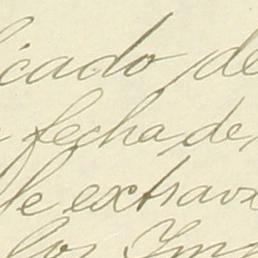 icado de
fecha de
le extrav
los Ing